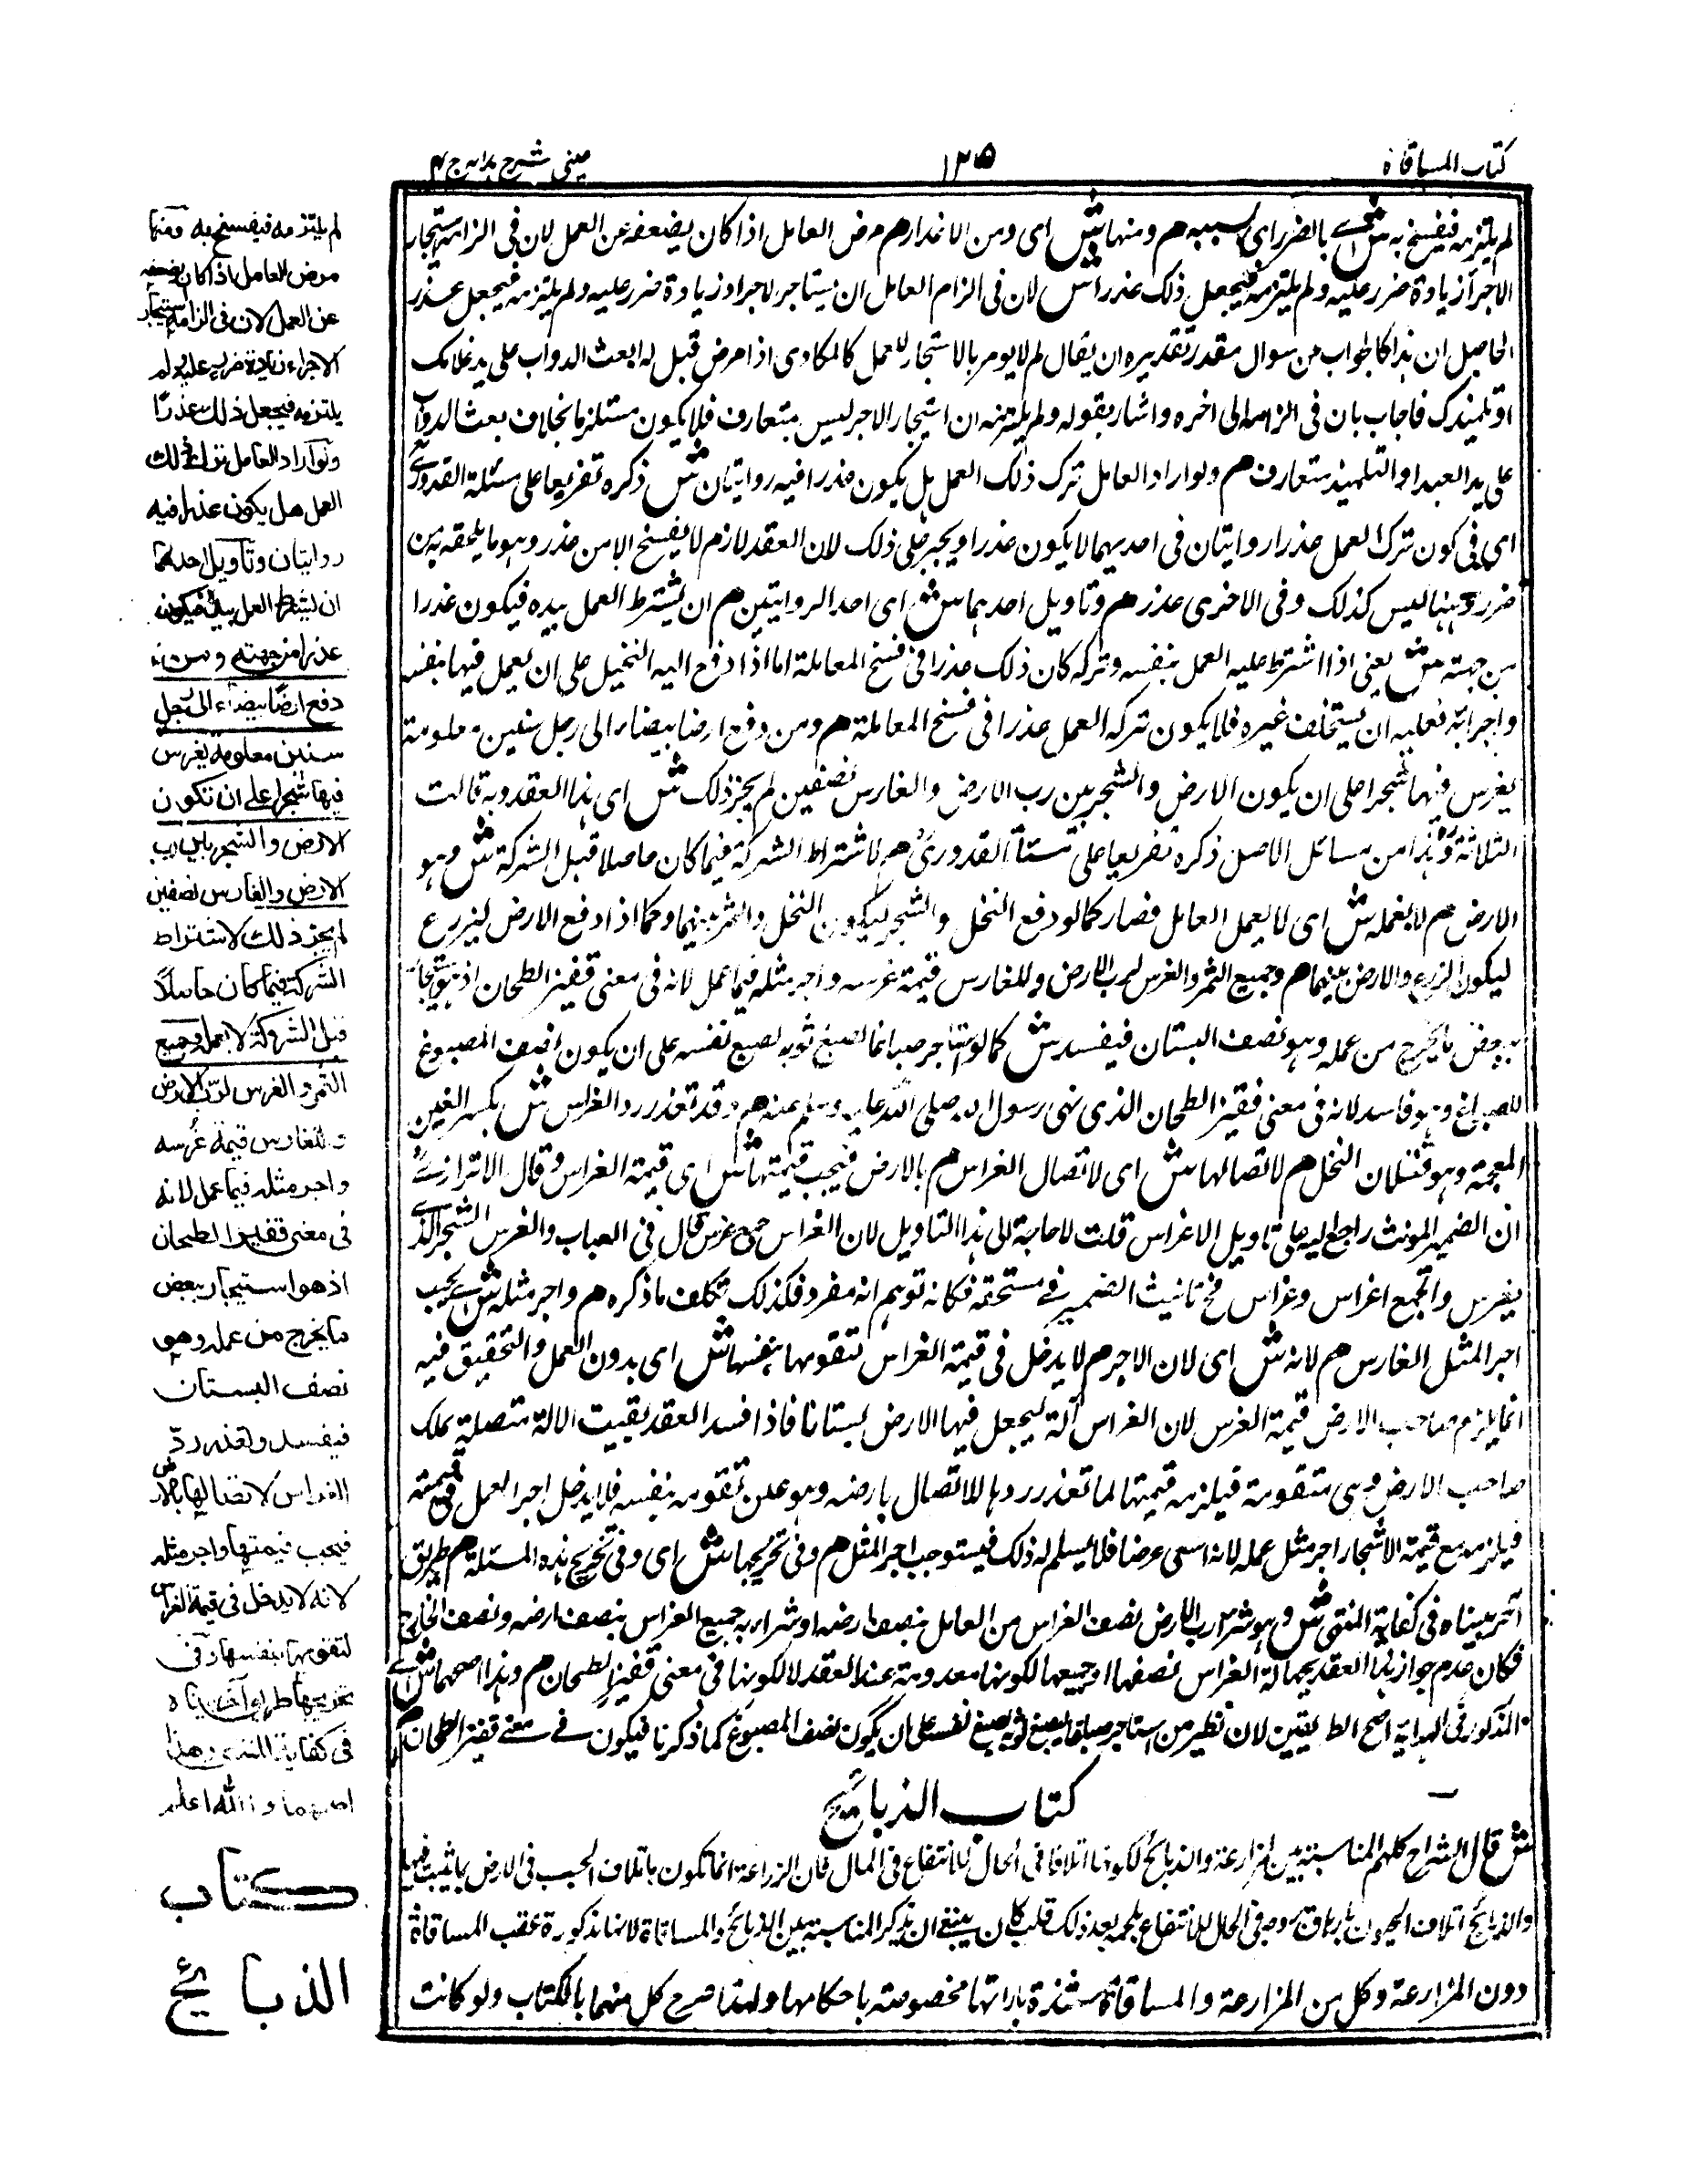 كتاب المساقاة
١٢٥
عينى شرح هدايه ج ٤
لم يلتزمه فيفسخ به ش اى بالضرر اى بسببه م ومنها ش اى ومن الاعذار م مرض العامل اذا كان يضعفه عن العمل لان فى الزامه استيجار
الاجراء زيادة ضرر عليه ولم يلتزمه فيجعل ذلك عذرا ش لان فى الزام العامل ان يستاجر لاجراء زيادة ضرر عليه ولم يلتزمه فيجعل عذرا
الحاصل ان هذا كالجواب من سوال مقدر تقديره ان يقال لم لا يومر بالاستيجار للعمل كالمكارى اذا مرض قيل له ابعث الدواب على يد غلامك
او تلميذك فاجاب بان فى الزامه الى اخره واشار بقوله ولم يلتزمه ان استيجار الاجر ليس بمتعارف فلا يكون مستلزما بخلاف بعث الدواب
على يد العبد او التلميذ متعارف م ولو اراد العامل ترك ذلك العمل هل يكون عذرا فيه روايتان ش ذكره تفريعا على مسئلة القدورى
اى فى كون ترك العمل عذرا روايتان فى احديهما لا يكون عذرا ويجبر على ذلك لان العقد لازم لا يفسخ الا من عذر وهو ما يلحقه به من
ضرر وههنا ليس كذلك وفى الاخرى عذر م وتاويل احدهما ش اى احد الروايتين م ان يشترط العمل بيده فيكون عذرا
من جهته ش يعنى اذا اشترط عليه العمل بنفسه وتركه كان ذلك عذرا فى فسخ المعاملة اما اذا دفع اليه النخيل على ان يعمل فيها بنفسه
واجرائه فعليه ان يستخلف غيره فلا يكون تركه العمل عذرا فى فسخ المعاملة م ومن دفع ارضا بيضاء الى رجل سنين معلومة
يغرس فيها شجرا على ان يكون الارض والشجر بين رب الارض والغارس نصفين لم يجز ذلك ش اى هذا العقد وبه قالت
الثلاثة وهذا من مسائل الاصل ذكره تفريعا على مسئلة القدورى م لاشتراط الشركة فيما كان حاصلا قبل الشركة ش وهو
الارض م لا بعمله ش اى لا بعمل العامل فصار كما لو دفع النخل والشجر ليكون النخل والثمر بينهما وكما اذا دفع الارض ليزرع
ليكون الزرع والارض بينهما م وجميع الثمر والغرس لرب الارض وللغارس قيمة غرسه واجر مثله فيما عمل لانه فى معنى قفيز الطحان اذ هو استيجار
ببعض ما يخرج من عمله وهو نصف البستان فيفسد ش كما لو استاجر صباغا لصبغ ثوبه بصبغ نفسه على ان يكون نصف المصبوغ
للصباغ وهو فاسد لانه فى معنى قفيز الطحان الذى نهى رسول الله صلى الله عليه وسلم عنه م وقد تعذر رد الغراس ش بكسر الغين
المعجمة وهو فسلان النخل م لاتصالها ش اى لاتصال الغراس م بالارض فيجب قيمتها ش اى قيمة الغراس وقال الاترازى
ان الضمير المونث راجع اليه على تاويل الاغراس قلت لا حاجة الى هذا التاويل لان الغراس جمع غرس قال فى العباب والغرس الشجر الذى
يغرس والجمع اغراس وغراس فح تانيث الضمير فى مستحقه فكانه توهم انه مفرد فلذلك تكلف ما ذكره م واجر مثله ش اى يجب
اجر المثل الغارس م لانه ش اى لان الاجر م لا يدخل فى قيمة الغراس لتقومها بنفسها ش اى بدون العمل والتحقيق فيه
انما يلزم صاحب الارض قيمة الغرس لان الغراس آلة ليجعل فيها الارض بستانا فاذا فسد العقد بقيت الالة متصلة بملك
صاحب الارض وهى متقومة فيلزمه قيمتها لما تعذر ردها للاتصال بارضه وهو عين تقومه بنفسه فلا يدخل اجر العمل فى قيمته
فيلزمه مع قيمة الاشجار اجر مثل عمله لانه اسعى عوضا فلا يسلم له ذلك فيستوجب اجر المثل م وفى تخريجها ش اى وفى تخريج هذه المسئلة م طريق
آخر بيناه فى كفاية المنتهى ش وهو شراء رب الارض نصف الغراس من العامل بنصف ارضه او شراءه جميع الغراس بنصف ارضه ونصف الخارج
فكان عدم جواز هذا العقد لجهالة الغراس نصفها او جميعها لكونها معدومة عند العقد لا لكونها فى معنى قفيز الطحان م وهذا اصحهما ش اى
المذكور فى الهداية اصح الطريقين لان نظير من استاجر صباغا ليصبغ ثوبه بصبغ نفسه على ان يكون نصف المصبوغ كما ذكرنا فيكون فى معنى قفيز الطحان
كتاب الذبائح
ش قال الشراح كلهم المناسبة بين المزارعة والذبائح لكونها اتلافا فى الحال للانتفاع فى المال فان الزراعة انما تكون باتلاف الحب فى الارض بما ينبت فيها
والذبائح اتلاف الحيوان بازهاق روحه فى الحال للانتفاع بلحمه بعد ذلك قلت كان ينبغى ان يذكر المناسبة بين الذبائح والمساقاة لانها مذكورة عقب المساقاة
دون المزارعة وكل من المزارعة والمساقاة باراتها مخصوصة باحكامها ولهذا صرح كل منهما بالكتاب ولو كانت
لم يلتزمه فيفسخ به ومنها
مرض العامل اذا كان يضعفه
عن العمل لان فى الزامه استيجار
الاجراء زيادة ضرر عليه ولم
يلتزمه فيجعل ذلك عذرًا
ولو اراد العامل ترك ذلك
العمل هل يكون عذرا فيه
روايتان وتاويل احدهما
ان يشترط العمل بيده فيكون
عذرا من جهته ومن
دفع ارضًا بيضاء الى رجل
سنين معلومة يغرس
فيها شجرا على ان تكون
الارض والشجر بين رب
الارض والغارس نصفين
لم يجز ذلك لاشتراط
الشركة فيما كان حاصلاً
قبل الشركة لا بعمله وجميع
الثمر والغرس لرب الارض
وللغارس قيمة غرسه
واجر مثله فيما عمل لانه
فى معنى قفيز الطحان
اذ هو استيجار ببعض
ما يخرج من عمله وهو
نصف البستان
فيفسد وتعذر ردّ
الغراس لاتصالها بالارض
فيجب قيمتها واجر مثله
لانه لا يدخل فى قيمة الغراس
لتقومها بنفسها وفى
تخريجها طريق آخر بيناه
فى كفاية المنتهى وهذا
اصحهما والله اعلم
كتاب
الذبائح